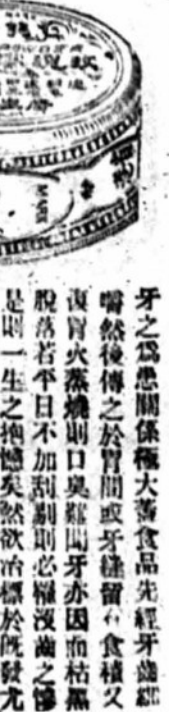 牙之爲患關係極大蓋食品先經牙齒細
嚼然後傳之於胃間或牙縫留有食積又
復胃火蒸燒則口臭難聞牙亦因而枯黑
脫落若平日不加刮剔則必罹沒齒之慘
是則一生之抱憾矣然欲治標於旣發尤